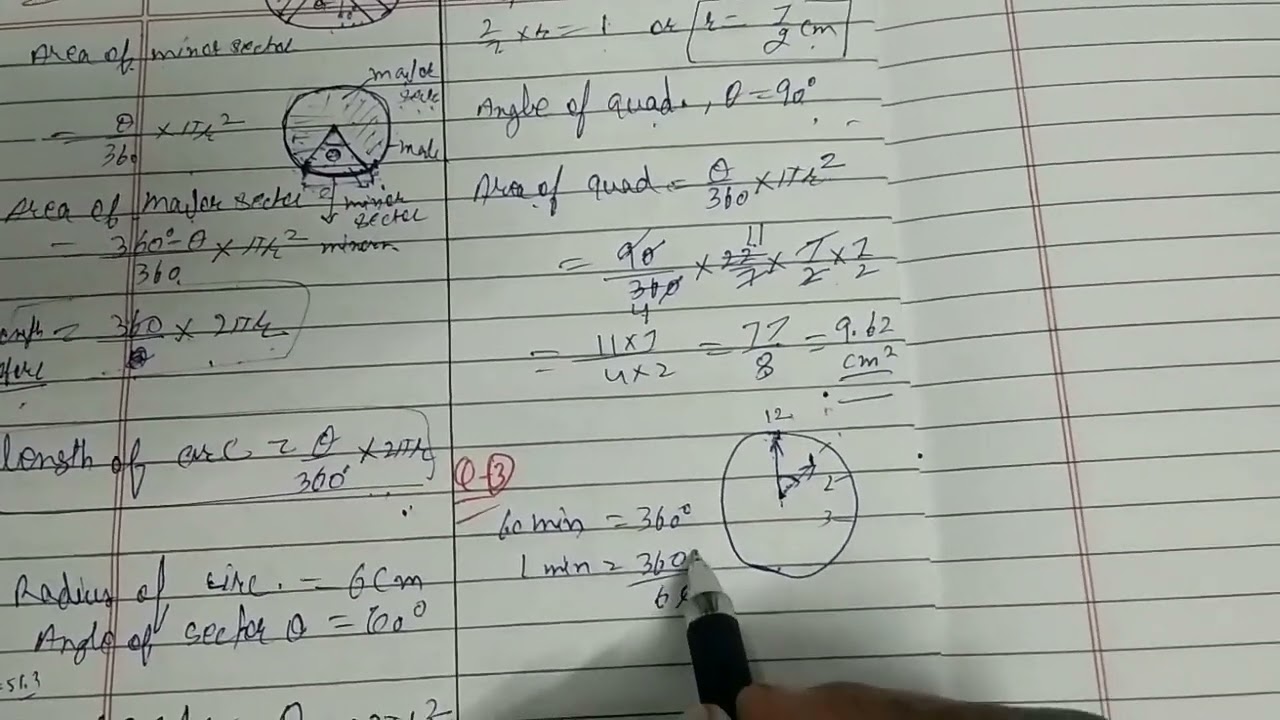 Area of minor sector
= θ/360 × πr²
major
Area of major sector
minor sector
= 360°-θ/360 × πr²
= 360/θ × 2πr
Length of arc = θ/360° × 2πr
Radius of circ. = 6cm
Angle of sector θ = 60°
2/7 × r = 1 or r = 7/2 cm
Angle of quad., θ = 90°
Area of quad = θ/360 × πr²
= 90/360 × 22/7 × 7/2 × 7/2
11
4
= 11×7/4×2 = 77/8 = 9.62 cm²
12
2
3
Q-3
60 min = 360°
1 min = 360/60